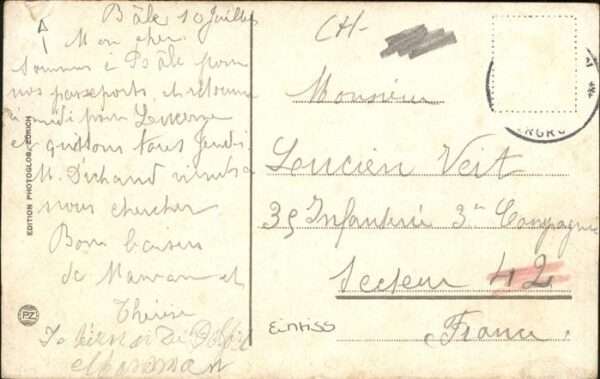 Bâle 10 Juillet
Mon cher
Sommes à Bâle pour
nos passeports, et retourne
midi pour Lucerne
et quittons tous Jeudi.
M. Dichand viendra
nous chercher
Bons baisers
de Maman et
Thérèse
EDITION PHOTOGLOB, ZÜRICH
PZ
CH-
Monsieur
Lucien Veit
35 Infanterie 3me Compagnie
Secteur 42
France.
Einriss